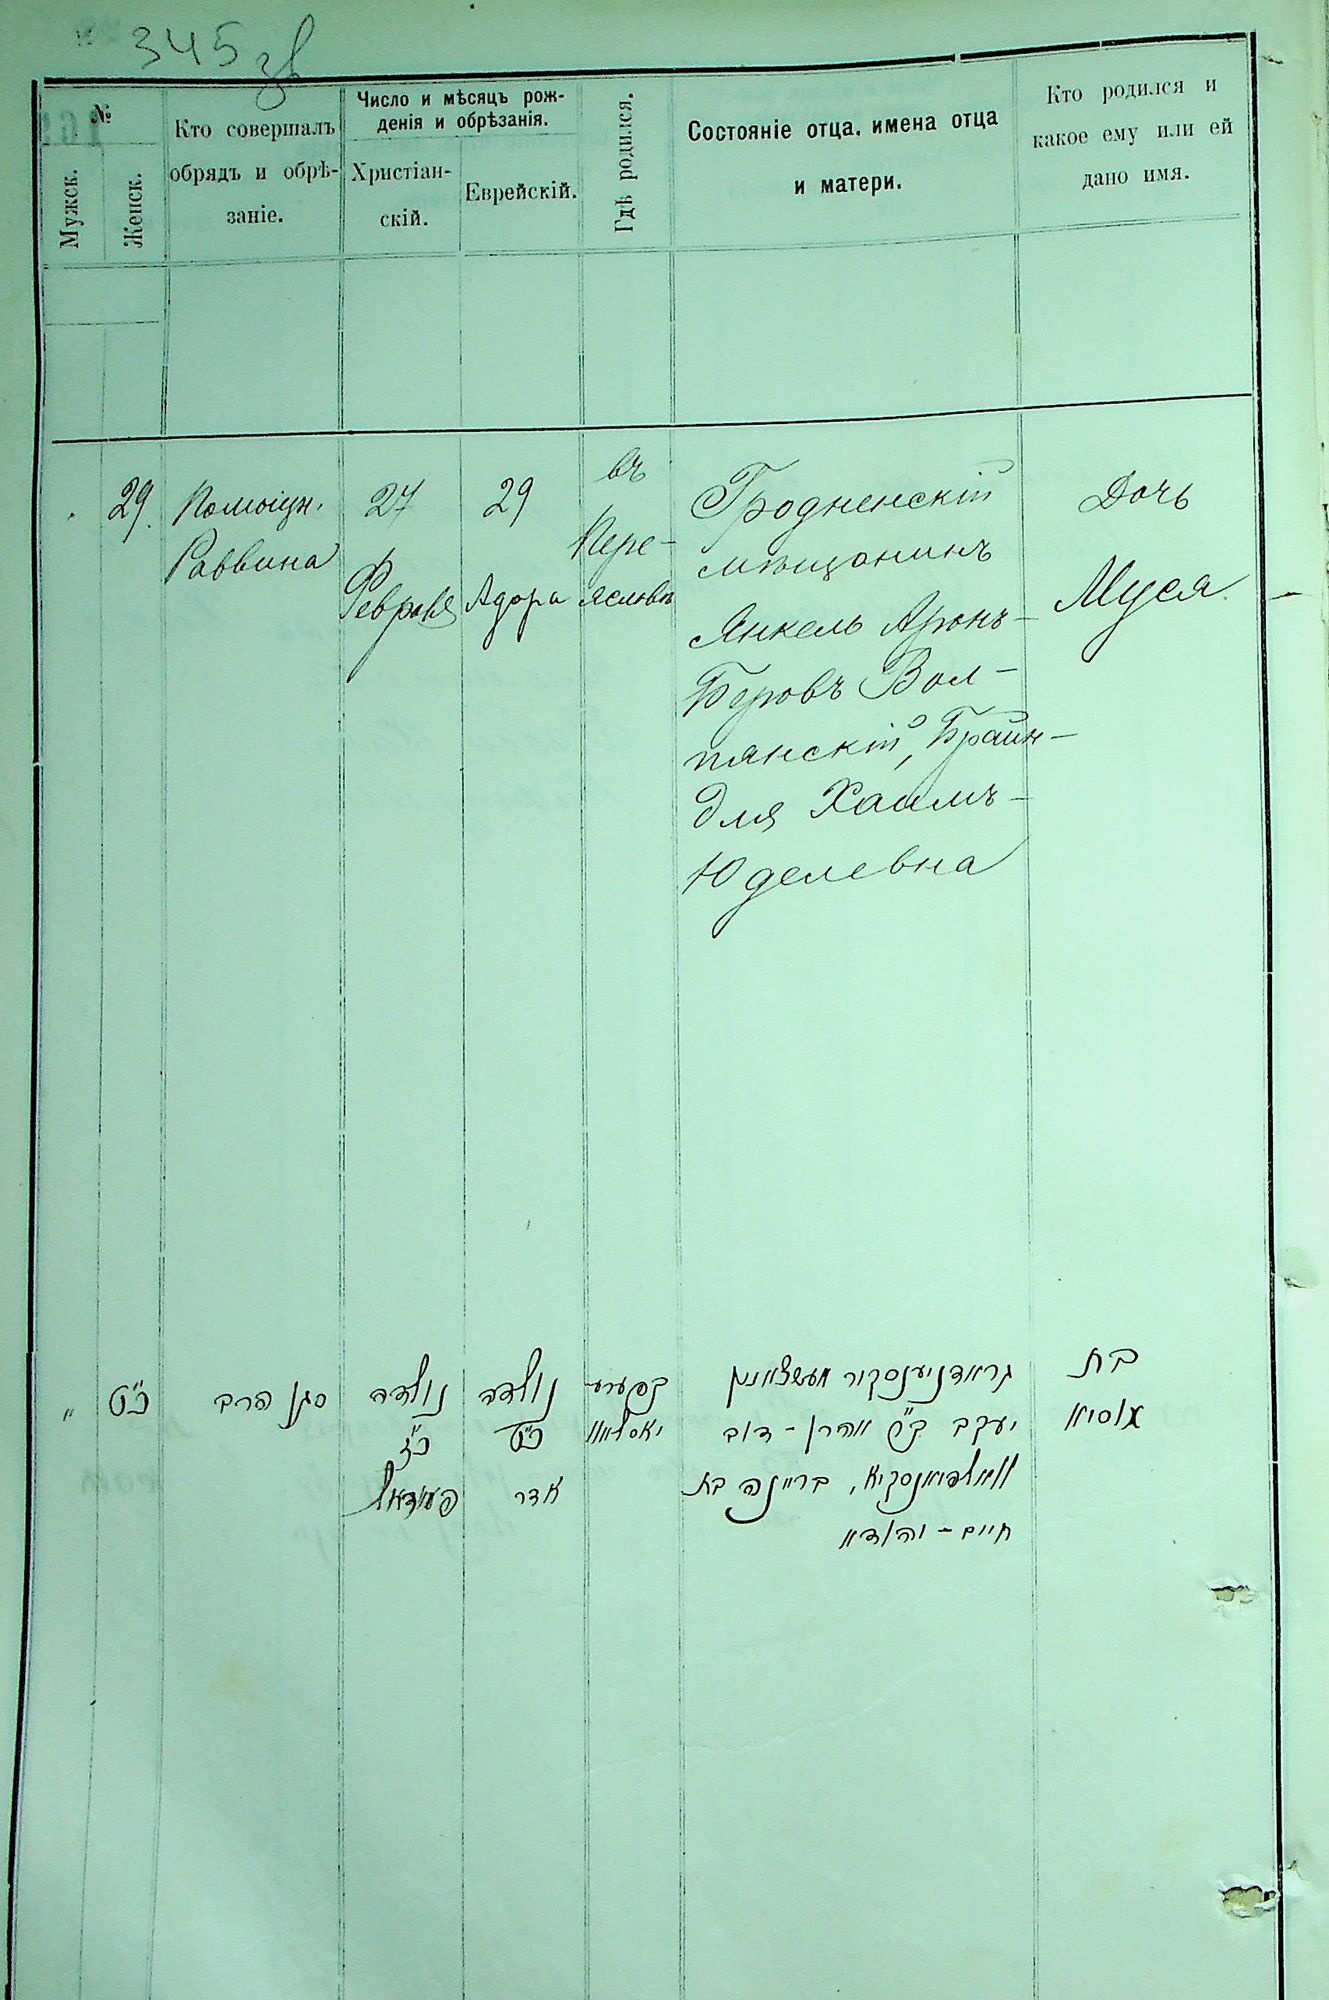 345 зв
№
Мужск.
Женск.
Кто совершалъ
обрядъ и обрѣ-
заніе.
Число и мѣсяцъ рож-
денія и обрѣзанія.
Христіан-
скій.
Еврейскій.
Гдѣ родился.
Состояніе отца, имена отца
и матери.
Кто родился и
какое ему или ей
дано имя.
29.
Помощн.
Раввина
27
Февраля
29
Адора
въ
Пере-
яславѣ
Гродненскій
мѣщанинъ
Янкель Аронъ-
Беровъ Вол-
пянскій, Браин-
для Хаимъ-
Юделевна
Дочь
Муся.
כ"ט
סגן הרב
נולדה
כ"ז
פעווראל
נולדה
כ"ט
אדר
בפערע
יאסלאוו
גראדניענסקיר מעשצאנין
יעקב ב"ר אהרן - דוב
וואלפיאנסקיא, בריינה בת
חיים - יהודא
בת
מוסיא